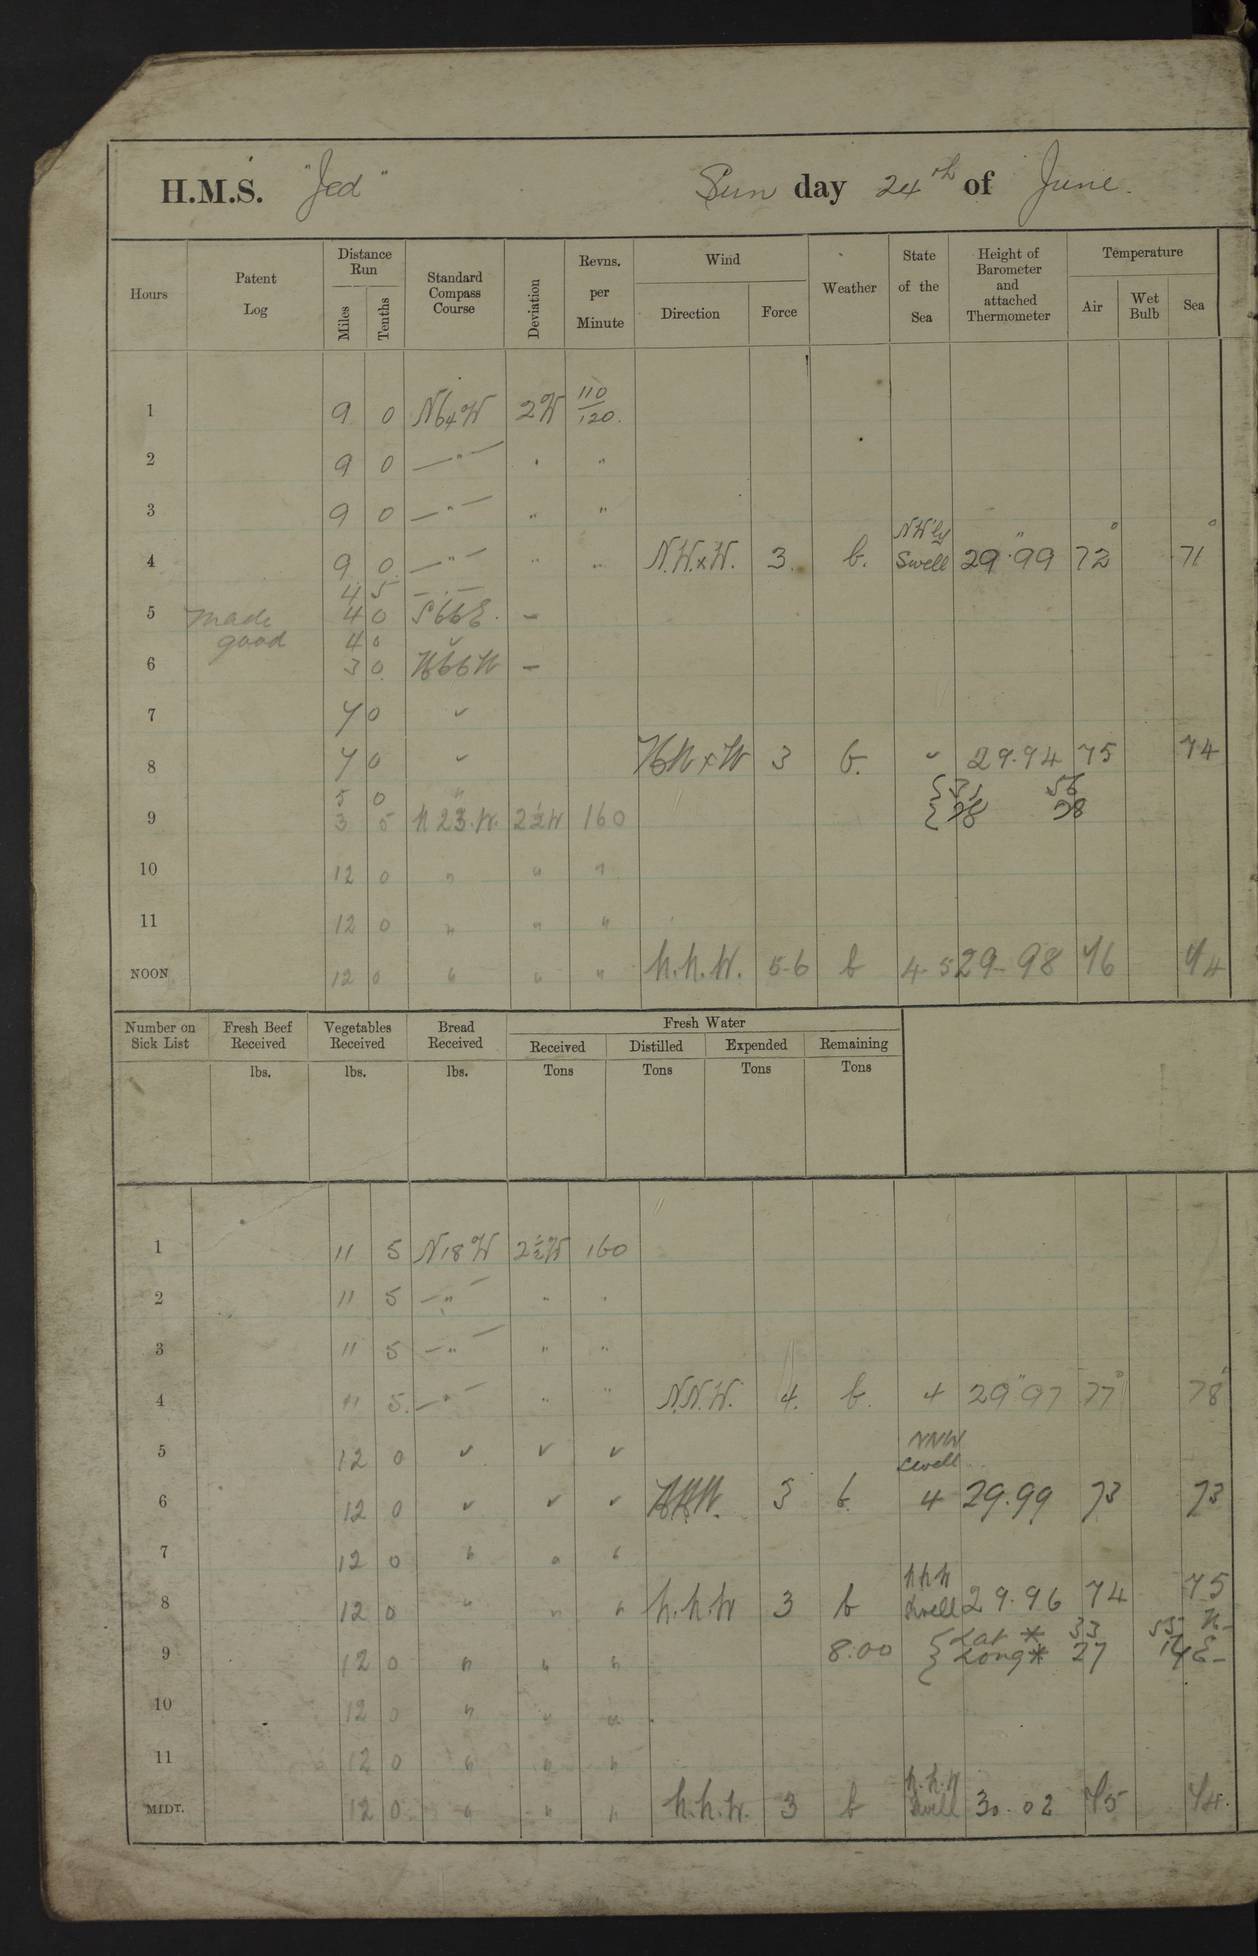 H.M.S. "Jed" Sun day 24th of June.
Hours Patent Log Distance Run Miles Tenths Standard Compass Course Deviation Revns. per Minute Wind Direction Force Weather State of the Sea Height of Barometer and attached Thermometer Temperature Air Wet Bulb Sea
1 9 0 N64W 2W 110/120.
2 9 0 — " — " "
3 9 0 — " — " "
NW'ly
4 9 0 — " — " " N.W.xW. 3. b. Swell 29.99 72 71
4 5 — " —
5 made 4 0 S66E. –
good 4 0 ✓
6 3 0 N66W –
7 7 0 ✓
8 7 0 ✓ NWxW 3 b. ✓ 29.94 75 74
5 0 " { 31 56
9 3 5 N 23.W. 2½W 160 { 28 28
10 12 0 " " "
11 12 0 " " "
NOON 12 0 " " " N.N.W. 5-6 b 4-5 29-98 76 74
Number on Sick List Fresh Beef Received Vegetables Received Bread Received Fresh Water
Received Distilled Expended Remaining
lbs. lbs. lbs. Tons Tons Tons Tons
1 11 5 N18W 2½W 160
2 11 5 — " — " "
3 11 5 — " — " "
4 11 5. — " — " " N.N.W. 4. b. 4 29.97 77 78
5 12 0 ✓ ✓ ✓ NNW
Swell
6 12 0 ✓ ✓ ✓ NNW. 3 b. 4 29.99 73 73
7 12 0 " " "
NNW
8 12 0 " " " N.N.W 3 b Swell 29.96 74 75
{ Lat * 33 55 N-
9 12 0 " " " 8.00 { Long * 27 14 E-
10 12 0 " " "
11 12 0 " " "
N.N.W
MIDT. 12 0 " " " N.N.W. 3 b Swell 30.02 75 74.